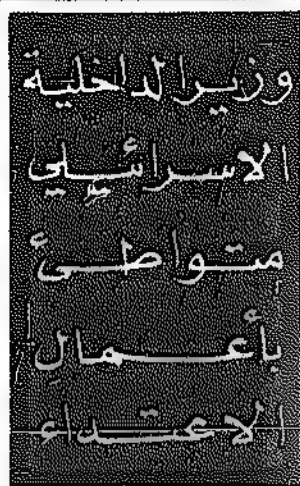 وزير الداخلية
الاسرائيلي
متواطئ
بأعمال
الاعتداء